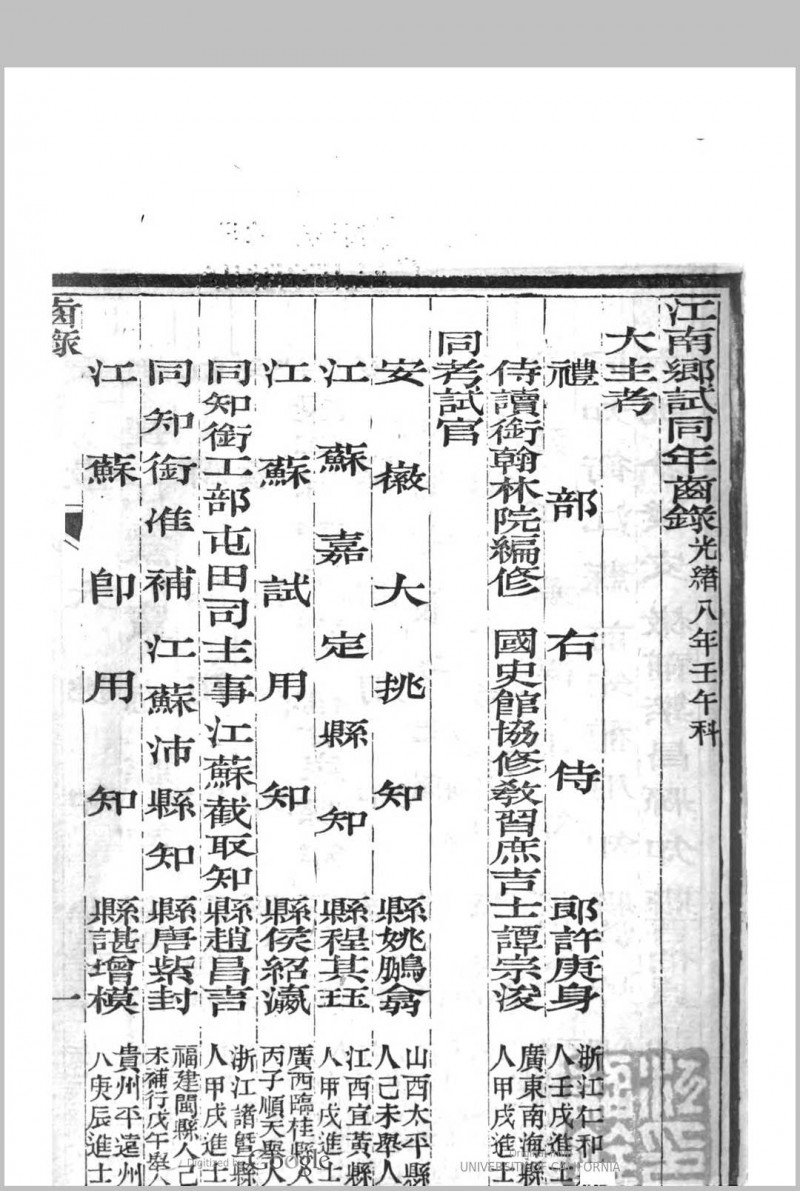 江南鄉試同年齒錄光緒八年壬午科
大主考
禮部右侍郎許庚身浙江仁和
人壬戌進士
侍讀銜翰林院編修 國史館協修教習庶吉士譚宗浚廣東南海縣
人甲戌進士
同考試官
安徽大挑知縣姚鵬翕山西太平縣
人己未舉人
江蘇嘉定縣知縣程其珏江西宜黃縣
人甲戌進士
江蘇試用知縣侯紹瀛廣西臨桂縣人
丙子順天舉人
同知銜工部屯田司主事江蘇截取知縣趙昌吉浙江諸曁縣
人甲戌進士
同知銜准補江蘇沛縣知縣唐紫封福建閩縣人己
未補行戊午舉人
江蘇即用知縣諶增模貴州平遠州
人庚辰進士
齒錄
一
Digitized by Google
UNIVERSITY OF CALIFORNIA